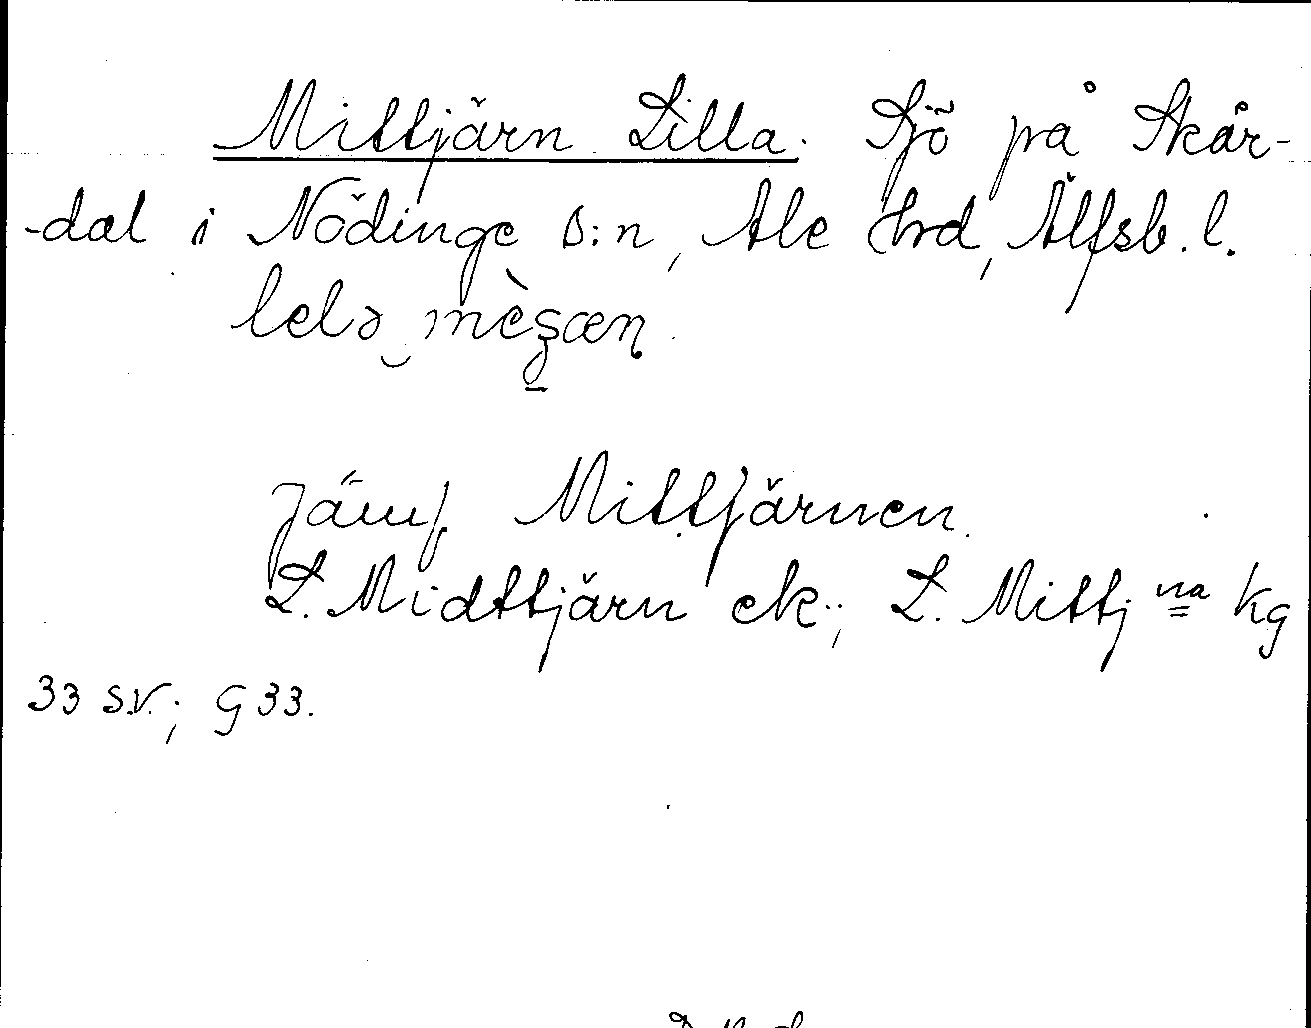 Mittjärn Lilla. Sjö på Skår-
-dal i Nödinge s:n, Ale hrd, Älfsb. l.
lelə mèʂæɳ.
Jämf. Mittjärnen.
L. Midttjärn ek.; L. Mittj na kg
33 SV.; G 33.